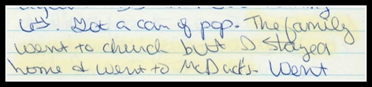 it. Got a can of pop. The family
went to church but D stayed
home & went to McDacks. Went